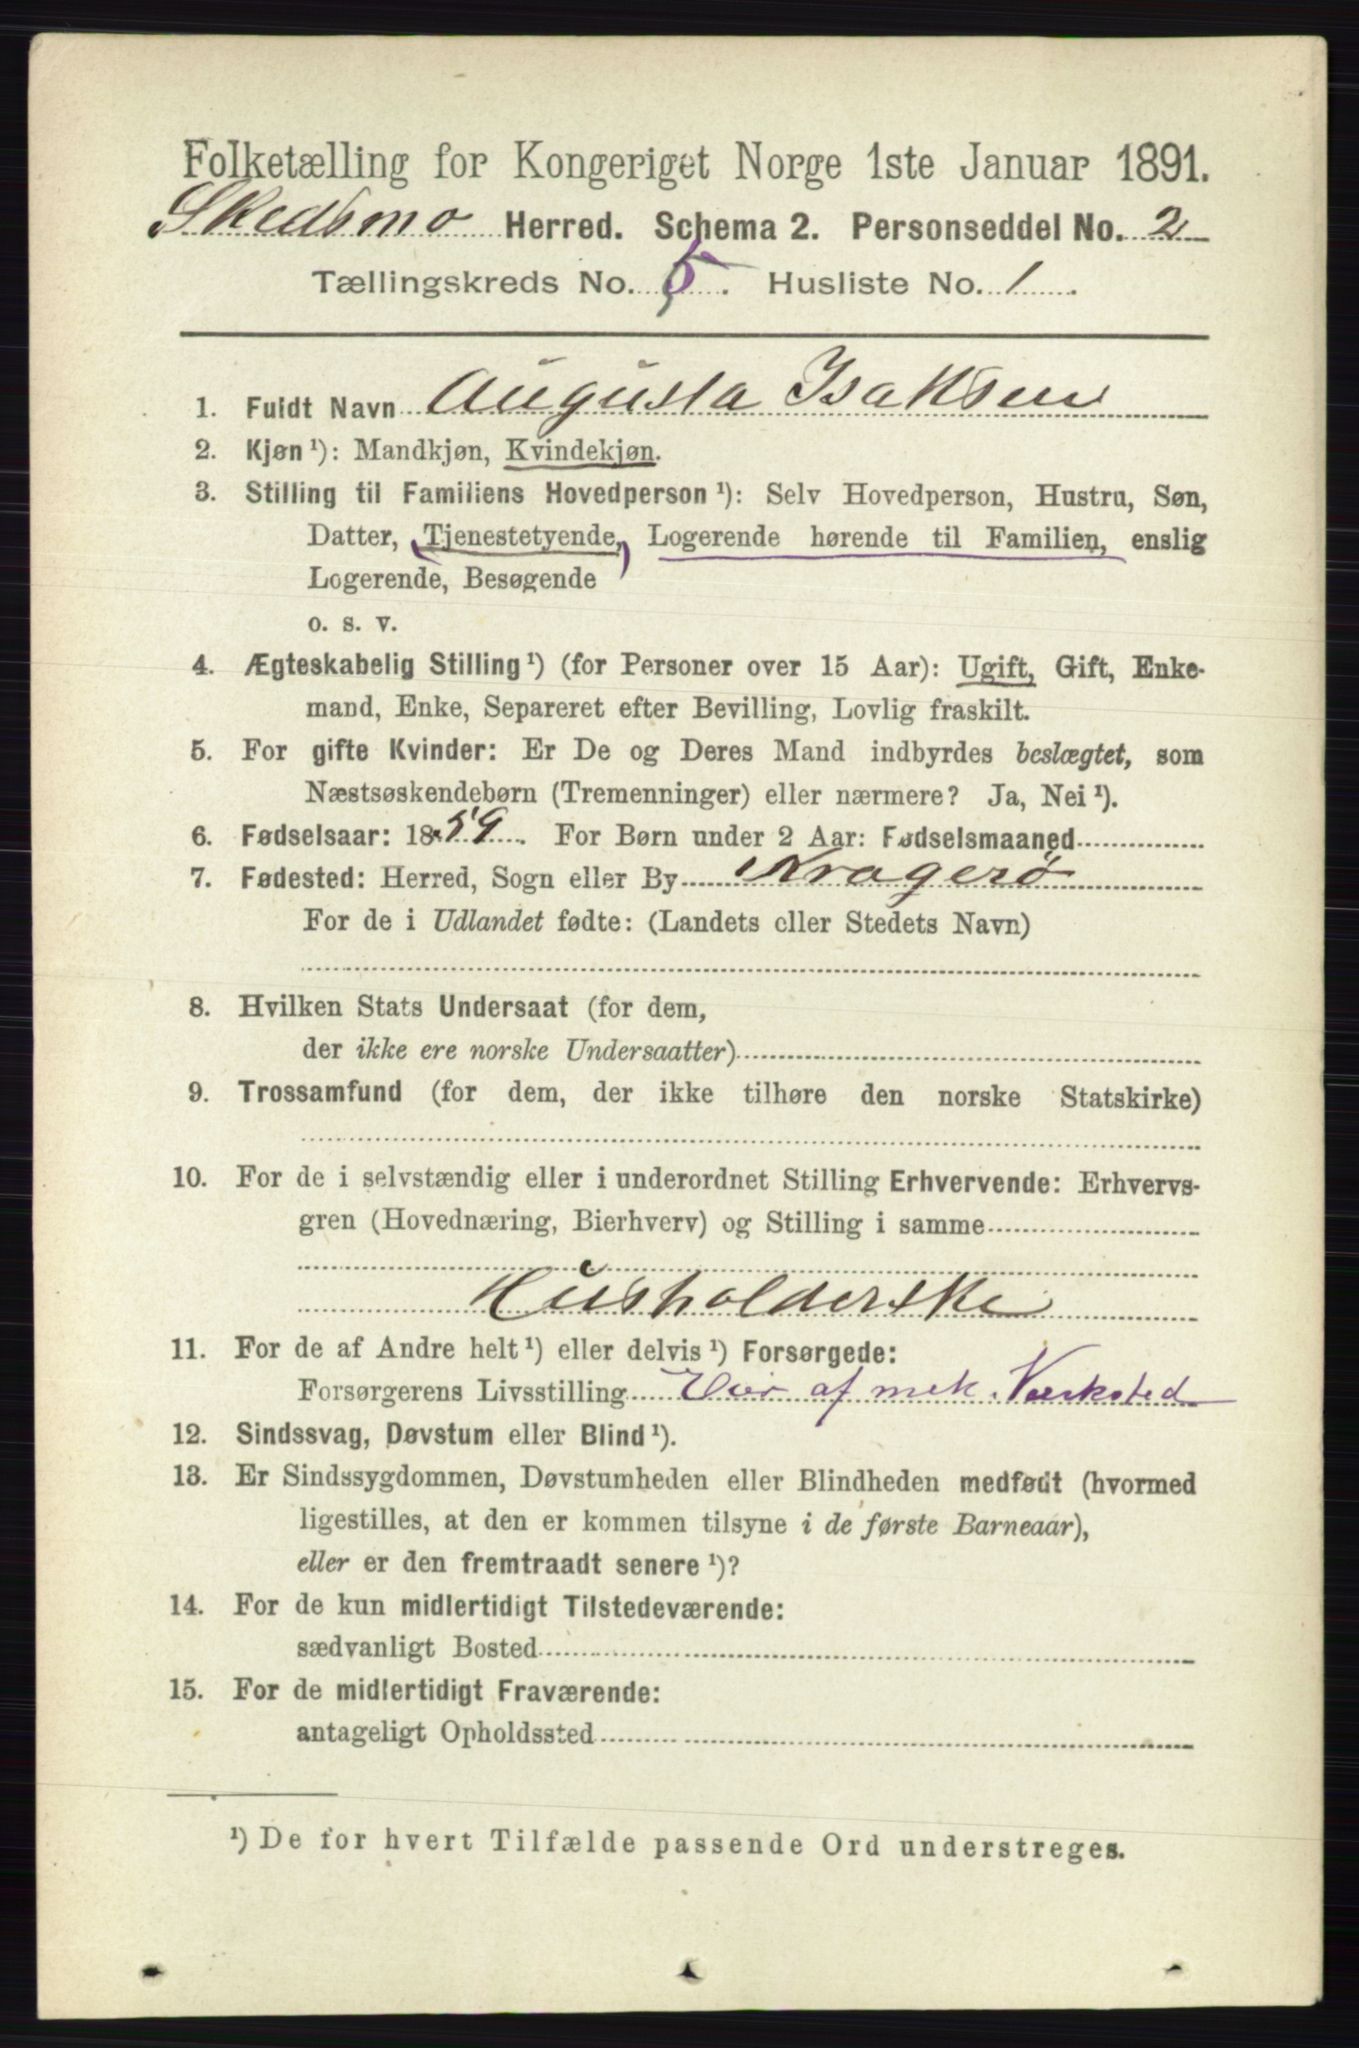 Folketælling for Kongeriget Norge 1ste Januar 1891.
Skedsmo Herred. Schema 2. Personseddel No. 2
Tællingskreds No. 5. Husliste No. 1.
1. Fuldt Navn Augusta Isaksen
2. Kjøn¹): Mandkjøn, Kvindekjøn.
3. Stilling til Familiens Hovedperson¹): Selv Hovedperson, Hustru, Søn,
Datter, (Tjenestetyende,) Logerende hørende til Familien, enslig
Logerende, Besøgende
o. s. v.
4. Ægteskabelig Stilling¹) (for Personer over 15 Aar): Ugift, Gift, Enke-
mand, Enke, Separeret efter Bevilling, Lovlig fraskilt.
5. For gifte Kvinder: Er De og Deres Mand indbyrdes beslægtet, som
Næstsøskendebørn (Tremenninger) eller nærmere? Ja, Nei¹).
6. Fødselsaar: 1859. For Børn under 2 Aar: Fødselsmaaned
7. Fødested: Herred, Sogn eller By Kragerö
For de i Udlandet fødte: (Landets eller Stedets Navn)
8. Hvilken Stats Undersaat (for dem,
der ikke ere norske Undersaatter)
9. Trossamfund (for dem, der ikke tilhøre den norske Statskirke)
10. For de i selvstændig eller i underordnet Stilling Erhvervende: Erhvervs-
gren (Hovednæring, Bierhverv) og Stilling i samme
Husholderske
11. For de af Andre helt¹) eller delvis¹) Forsørgede:
Forsørgerens Livsstilling Eier af mek. Værksted
12. Sindssvag, Døvstum eller Blind¹).
13. Er Sindssygdommen, Døvstumheden eller Blindheden medfødt (hvormed
ligestilles, at den er kommen tilsyne i de første Barneaar),
eller er den fremtraadt senere¹)?
14. For de kun midlertidigt Tilstedeværende:
sædvanligt Bosted
15. For de midlertidigt Fraværende:
antageligt Opholdssted
¹) De for hvert Tilfælde passende Ord understreges.